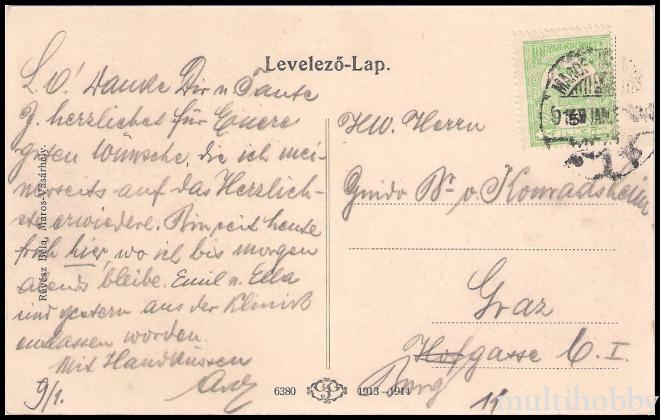 Levelező-Lap.
L. O! Danke Dir u. Tante
J. herzliches für Euere
guten Wünsche, die ich mei-
nerseits auf das Herzlich-
ste erwiedere. Bin seit heute
früh hier, wo ich bis morgen
abend bleibe. Emil u. Ella
sind gestern aus der Klinik
entlassen worden.
Mit Handküssen
9/1.
Révész Béla, Maros-Vásárhely.
HW. Herrn
Guido Br. v. Konradsheim
Graz
Hofgasse
Burg
6380 1913-1914
MAROS
915 JAN
multihobby